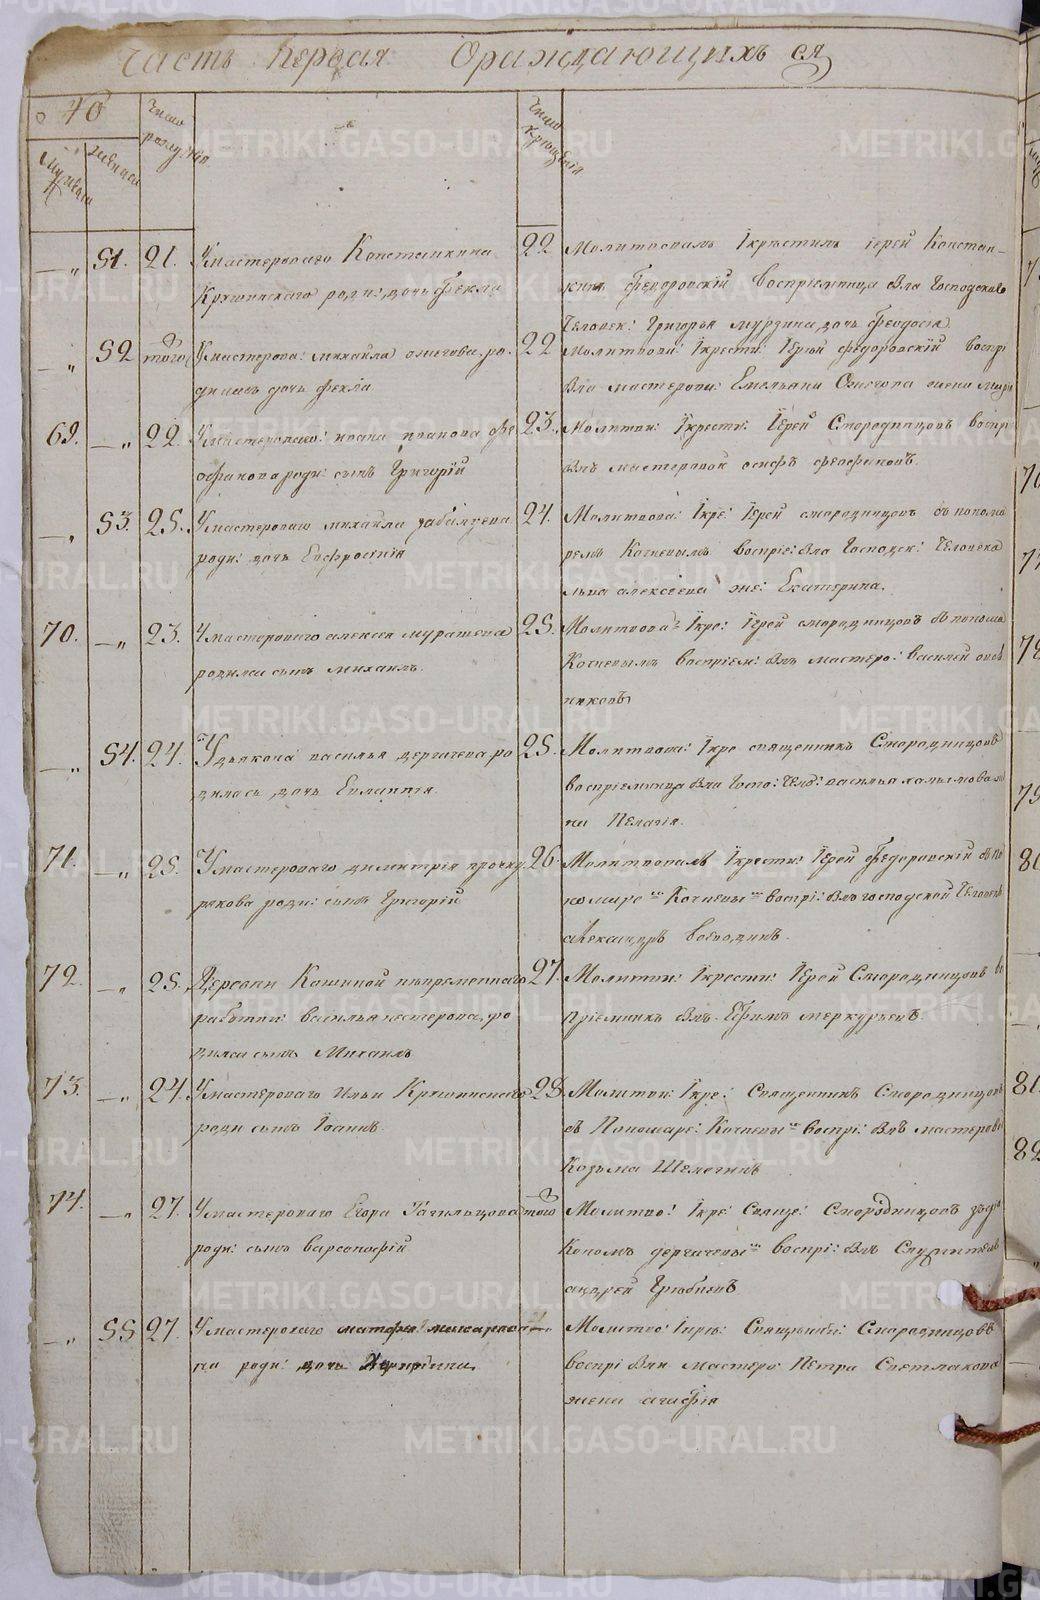 Часть Первая Ораждающихъ ся
40
Число рожденiя
Число крещенiя
Мужеска
Женска
51. 21. Умастероваго Констанкина
Кришинскаго роди: дочь Фекла
22 Молитвовалъ Iкрѣстилъ iерей Констан-
кинъ Федоровскiй Воспрiемница Была Господскаго
Человек: Григорья Мурзина дочь Феодосiя
52 того Умастерова: михайла ожегова, ро-
дилась дочь фекла
22 Молитвова: Iкрести: Iерей федоровскiй воспрi
Была мастерова: Емельяна Ожегова жена
69. 22. Умастероваго: ивана иванова фе
офанова роди: сынъ Григорiй
23. Молитви: Iкрести: Iерей Смородинцовъ воспрi
Былъ мастеровой осифъ феофановъ.
53. 25. Умастероваго михайла
роди: дочь Евфросинiя
24. Молитвова: Iкре: Iерей смородинцовъ съ понома
ремъ Кочневымъ воспрiе: Была Господск: Человека
льва алексѣева же: Екатерина.
70. 23. Умастероваго алексея муратева
родился сынъ михаилъ.
25. Молитвова: Iкре: Iерей смородинцовъ съ понома
Кочневымъ воспрiем: Былъ мастеро: василей овсѣ
никовъ
54. 24. Удьякона василья дергачева ро
дилась дочь Евлампiя.
25. Молитвова: Iкре священникъ Смородинцовъ
воспрiемница Была Госпо: Чело: василья
на Пелагiя.
71. 25. Умастероваго димитрiя прочку
рякова роди: сынъ Григорiй
26. Молитвовалъ Iкрести: Iерей Федоровскiй съ по
номаре Кочневы воспрi: Былъ господской Человекъ
александръ Воеводинъ.
72. 25. Деревни Кашиной непременнаго
работни: василья нестерова, ро
дился сынъ Михаилъ
27. Молитви: Iкрести: Iерей Смородинцовъ во
прiемникъ Былъ Ефимъ меркурьевъ
73. 24. Умастероваго Ильи Кришинскаго
роди сынъ Iоаннъ.
28. Молитви: Iкре: Священникъ Смородинцовъ
съ Пономаре: Кочневы воспрi: Былъ мастерово
Козьма Шелегинъ
74. 27. Умастероваго Егора Гагильцова
роди: сынъ варсонофiй
того Молитво: Iкре: Свяще: Смородинцовъ здья
Кономъ дергачевы воспрi: Былъ Служитель
андрей Грюбневъ
55 27. Умастероваго матфея
на роди: дочь
Молитво: Iкре: Священни: Смородинцовъ
воспрi Была мастеро: Петра Светлакова
жена агафiя